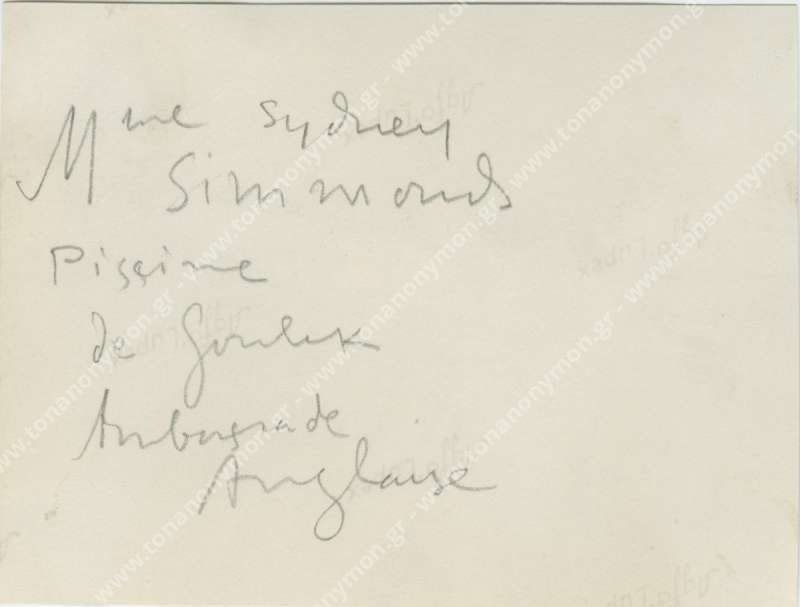 Mme Sydney
Simmonds
Piscine
de Goulek
Ambassade
Anglaise
www.tonanonymon.gr - www.tonanonymon.gr - www.tonanonymon.gr